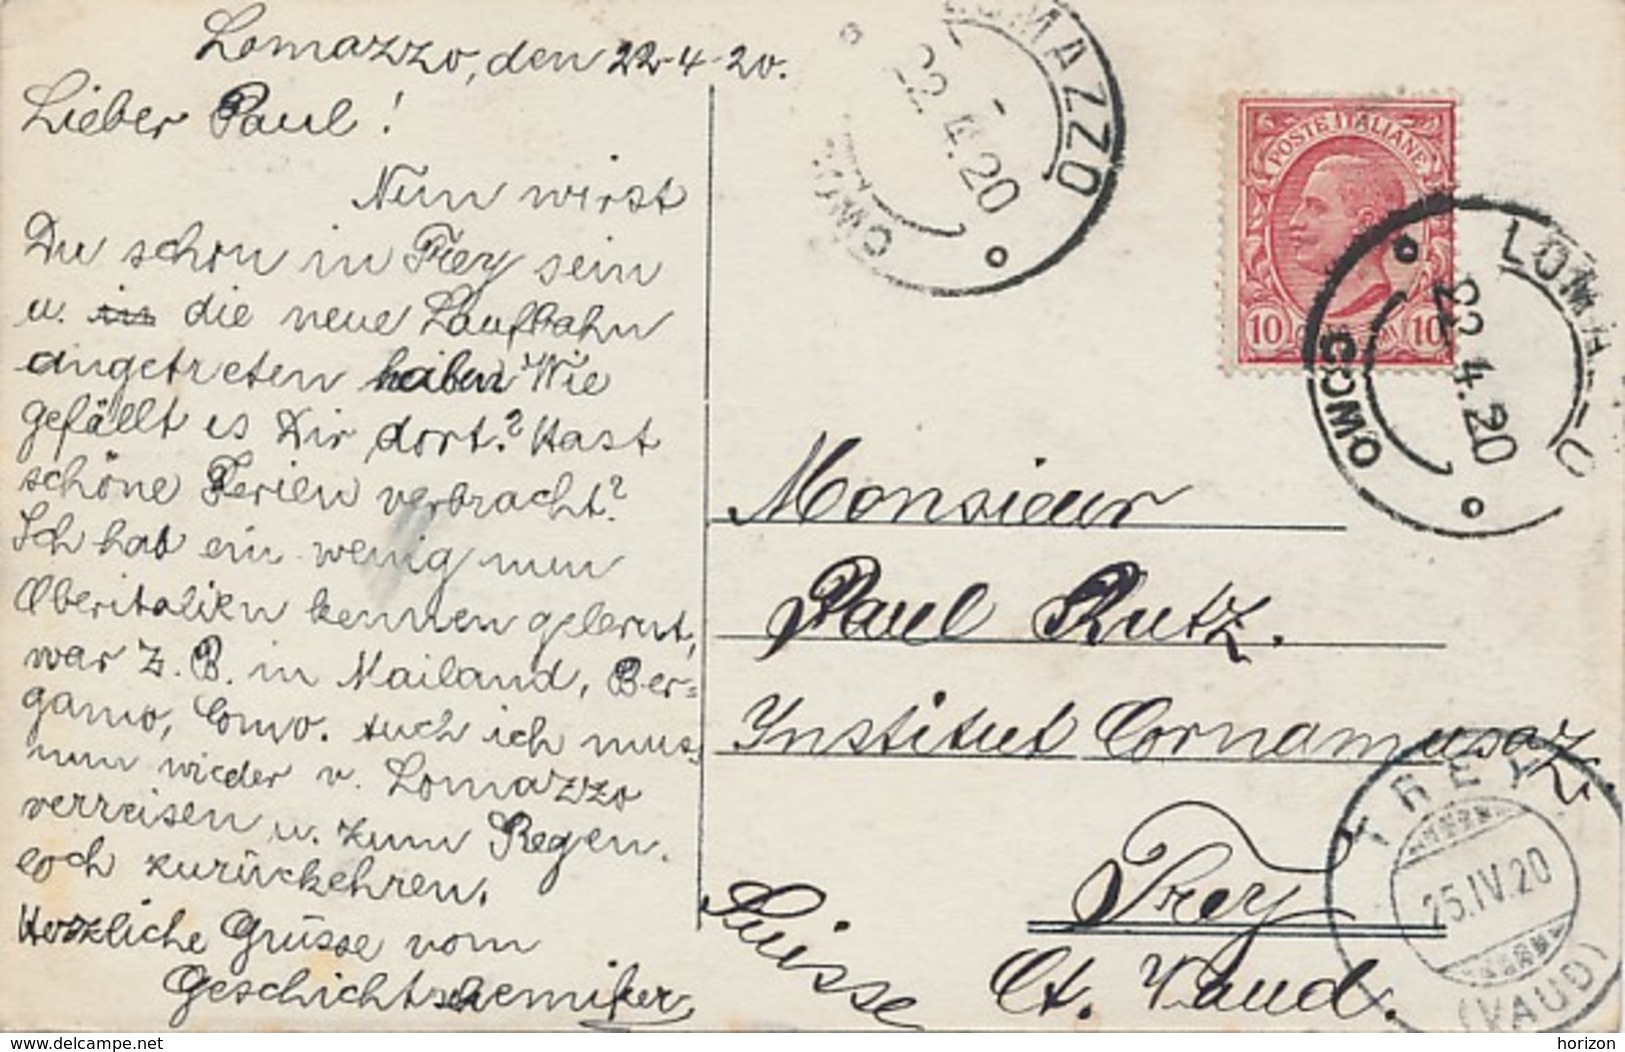 Lomazzo, den 22-4-20.
Lieber Paul!
Nun wirst
Du schon in Trey sein
u. die neue Laufbahn
angetreten haben. Wie
gefällt es Dir dort? Hast
schöne Ferien verbracht?
Ich hab ein wenig nun
Oberitalien kennen gelernt,
war z. B. in Mailand, Ber=
gamo, Como. Auch ich muss
nun wieder v. Lomazzo
verreisen u. zum Regen.
loch zurückkehren.
Herzliche Grüsse vom
Geschichtschemiker
LOMAZZO
22.4.20
COMO
POSTE ITALIANE
10 10
LOMAZZO
22.4.20
COMO
Monsieur
Paul Rutz.
Institut Cornamusaz.
Trey
Suisse
Ct. Vaud.
TREY
25.IV.20
(VAUD)
www.delcampe.net
horizon